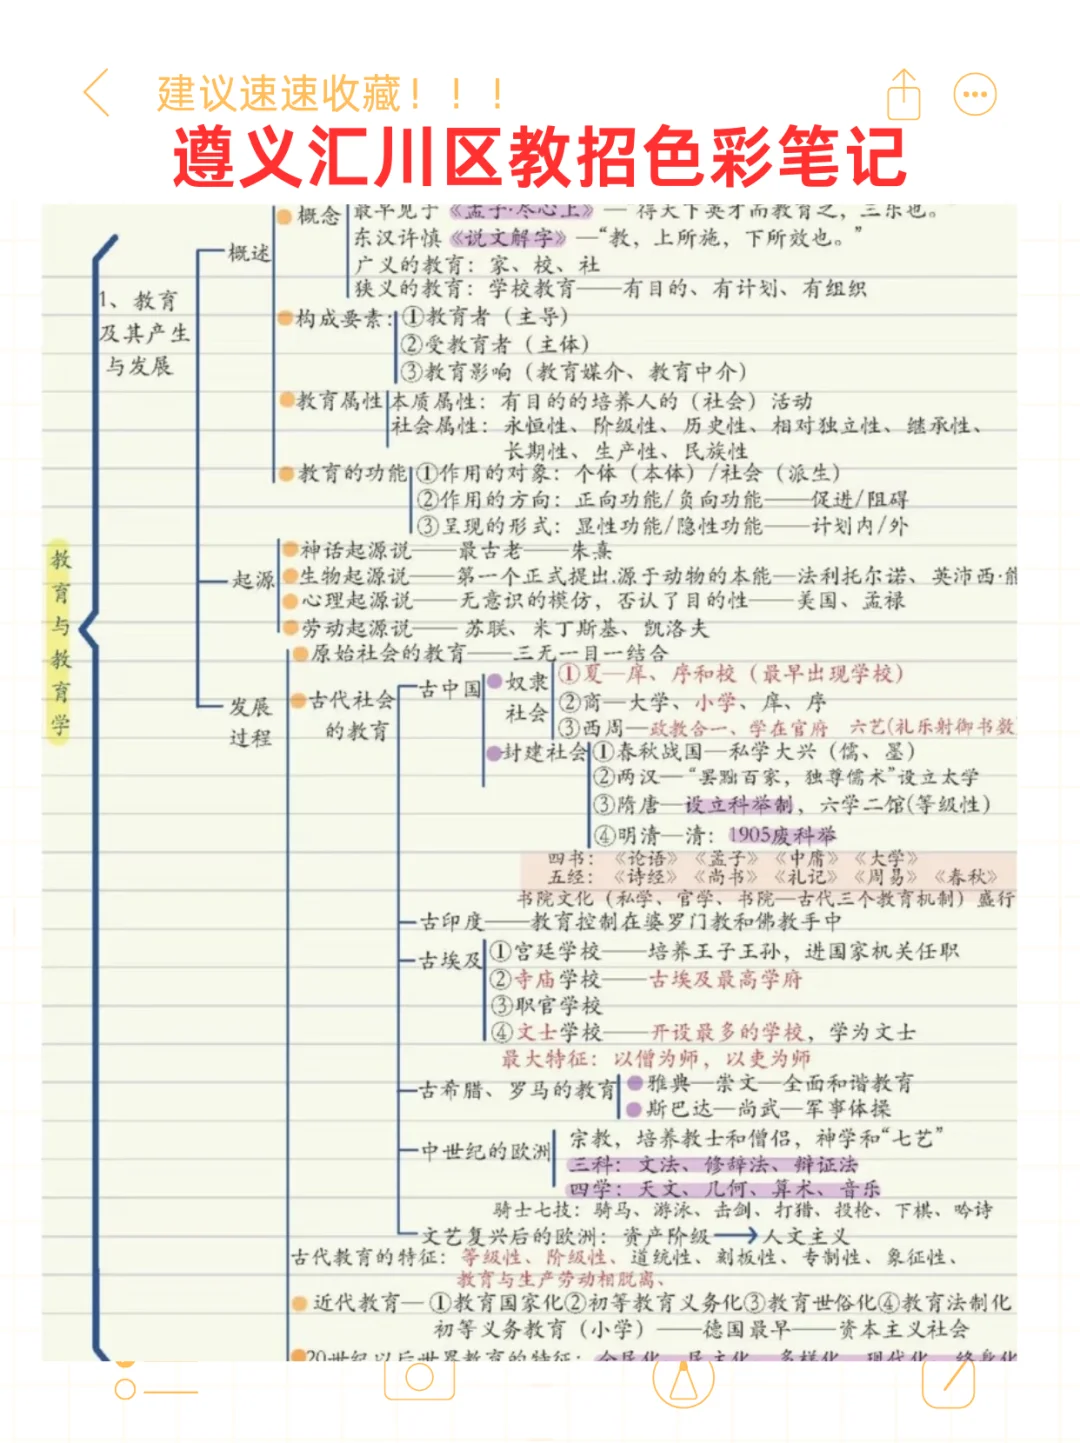 建议速速收藏！！！
遵义汇川区教招色彩笔记
教育与教育学
1、教育及其产生与发展
概述
概念
最早见于《孟子·尽心上》—“得天下英才而教育之，三乐也。”
东汉许慎《说文解字》—“教，上所施，下所效也。”
广义的教育：家、校、社
狭义的教育：学校教育——有目的、有计划、有组织
构成要素：①教育者（主导）
②受教育者（主体）
③教育影响（教育媒介、教育中介）
教育属性 本质属性：有目的的培养人的（社会）活动
社会属性：永恒性、阶级性、历史性、相对独立性、继承性、
长期性、生产性、民族性
教育的功能 ①作用的对象：个体（本体）/社会（派生）
②作用的方向：正向功能/负向功能——促进/阻碍
③呈现的形式：显性功能/隐性功能——计划内/外
起源
神话起源说——最古老——朱熹
生物起源说——第一个正式提出.源于动物的本能—法利托尔诺、英沛西·能
心理起源说——无意识的模仿，否认了目的性——美国、孟禄
劳动起源说——苏联、米丁斯基、凯洛夫
发展过程
原始社会的教育——三无一目一结合
古代社会的教育
古中国
奴隶社会
①夏—庠、序和校（最早出现学校）
②商—大学、小学、庠、序
③西周—政教合一、学在官府 六艺(礼乐射御书数
封建社会 ①春秋战国—私学大兴（儒、墨）
②两汉—“罢黜百家，独尊儒术”设立太学
③隋唐—设立科举制，六学二馆(等级性)
④明清—清：1905废科举
四书：《论语》《孟子》《中庸》《大学》
五经：《诗经》《尚书》《礼记》《周易》《春秋》
书院文化（私学、官学、书院—古代三个教育机制）盛行
古印度——教育控制在婆罗门教和佛教手中
古埃及 ①宫廷学校——培养王子王孙，进国家机关任职
②寺庙学校——古埃及最高学府
③职官学校
④文士学校——开设最多的学校，学为文士
最大特征：以僧为师，以吏为师
古希腊、罗马的教育 雅典—崇文—全面和谐教育
斯巴达—尚武—军事体操
中世纪的欧洲 宗教，培养教士和僧侣，神学和“七艺”
三科：文法、修辞法、辩证法
四学：天文、几何、算术、音乐
骑士七技：骑马、游泳、击剑、打猎、投枪、下棋、吟诗
文艺复兴后的欧洲：资产阶级→人文主义
古代教育的特征：等级性、阶级性、道统性、刻板性、专制性、象征性、
教育与生产劳动相脱离、
近代教育—①教育国家化②初等教育义务化③教育世俗化④教育法制化
初等义务教育（小学）——德国最早——资本主义社会
20世纪以后世界教育的特征：全民化、民主化、多样化、现代化、终身化